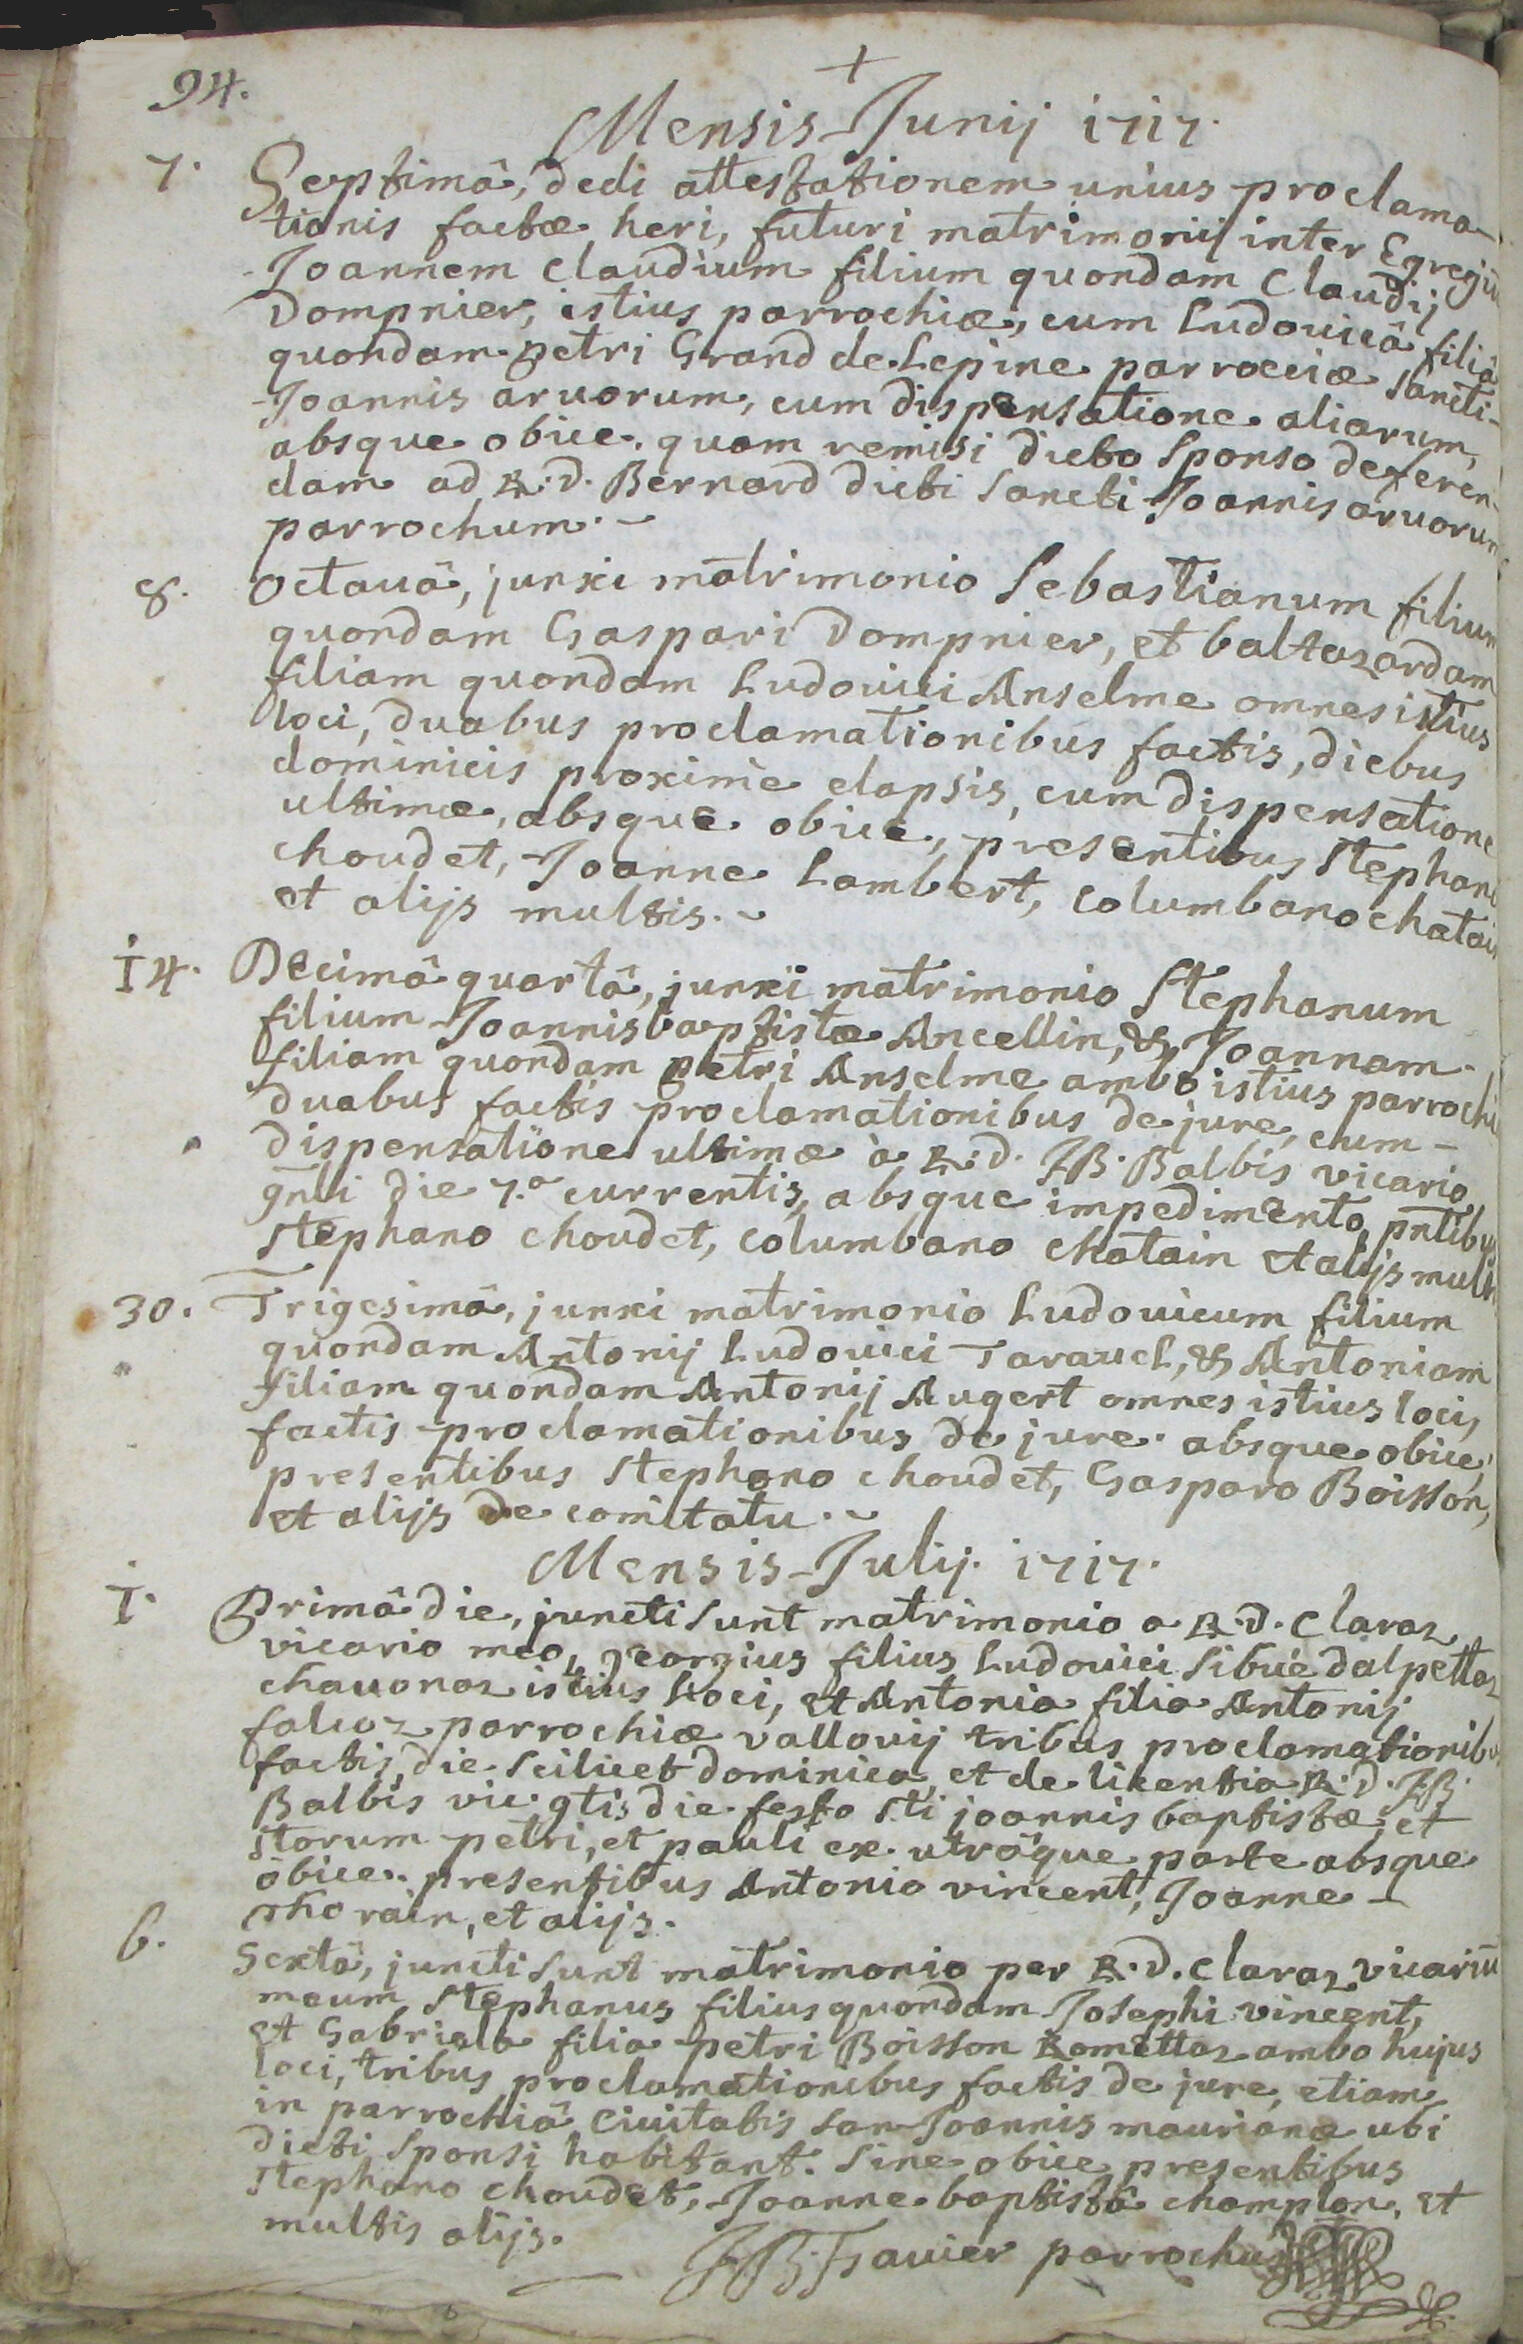 94.
+
Mensis Junij 1717.
7. Septimâ, dedi attestationem unius proclama-
tionis factæ heri, futuri matrimonij inter Egregiũ
Joannem claudium filium quondam Claudij
Dompnier, istius parrochiæ, cum Ludovicâ filiâ
quondam petri Grand de Lepine parrocciæ sancti-
Joannis aruorum, cum dispensatione aliarum,
absque obice. quam remisi dicto sponso deferen-
dam ad R.d. Bernard dicti sancti Joannis aruorum
parrochum.
8. Octauâ, junxi matrimonio Sebastianum filium
quondam Gaspari Dompnier, et baltazardam
filiam quondam Ludouici Anselme omnes istius
loci, duabus proclamationibus factis, diebus
dominicis proximè elapsis, cum dispensatione
ultimæ, absque obice, presentibus Stephano
choudet, Joanne Lambert, columbano chatain
et alijs multis.
14. Decimâ quartâ, junxi matrimonio Stephanum
filium Joannisbaptistæ Ancellin, & Joannam
filiam quondam petri Anselme ambo istius parrochiæ
duabus factis proclamationibus de jure, cum-
dispensatione ultimæ à R.d. JB. Balbis vicario
gnli die 7.a currentis, absque impedimento, pntibus
Stephano choudet, columbano chatain et alijs multis
30. Trigesimâ, junxi matrimonio Ludouicum filium
quondam Antonij Ludouici Tarauel, & Antoniam
filiam quondam Antonij Augert omnes istius loci,
factis proclamationibus de jure absque obice,
presentibus Stephano choudet, Gasparo Boisson,
et alijs de comitatu.
Mensis Julij. 1717.
1. Primâ die, juncti sunt matrimonio a R.d. Claraz
vicario meo, Georgius filius Ludouici Sibué dalpettaz
chauonaz istius loci, et Antonia filia Antonij
falcoz parrochiæ vallouij tribus proclamationibus
factis, die scilicet dominica, et de licentia R.d. JB.
Balbis vic. gtis die festo sti joannis baptistæ, et
storum petri, et pauli ex utrâque parte absque
obice. presentibus Antonio vincent, Joanne -
rain, et alijs.
6. Sextâ, juncti sunt matrimonio per R.d. Claraz vicariũ
meum Stephanus filius quondam Josephi vincent,
et Gabriela filia petri Boisson Romettaz ambo hujus
loci, tribus proclamationibus factis de jure, etiam
in parrochiâ Ciuitatis san Joannis maurianæ ubi
dicti Sponsi habitant. sine obice presentibus
Stephano choudet, Joanne baptistâ champlon, et
multis alijs.
parrochus